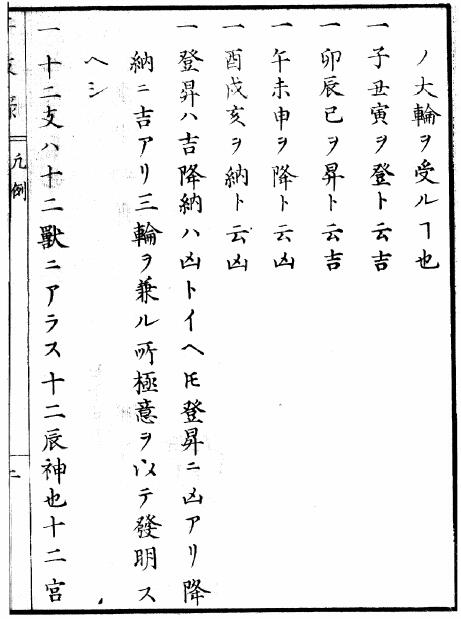 ノ大輪ヲ受ルヿ也
一子丑寅ヲ登ト云吉
一卯辰巳ヲ昇ト云吉
一午未申ヲ降ト云凶
一酉戌亥ヲ納ト云凶
一登昇ハ吉降納ハ凶トイヘ𪜈登昇ニ凶アリ降
納ニ吉アリ三輪ヲ兼ル所極意ヲ以テ發明ス
ヘシ
一十二支ハ十二獸ニアラス十二辰神也十二宮
凡例
二